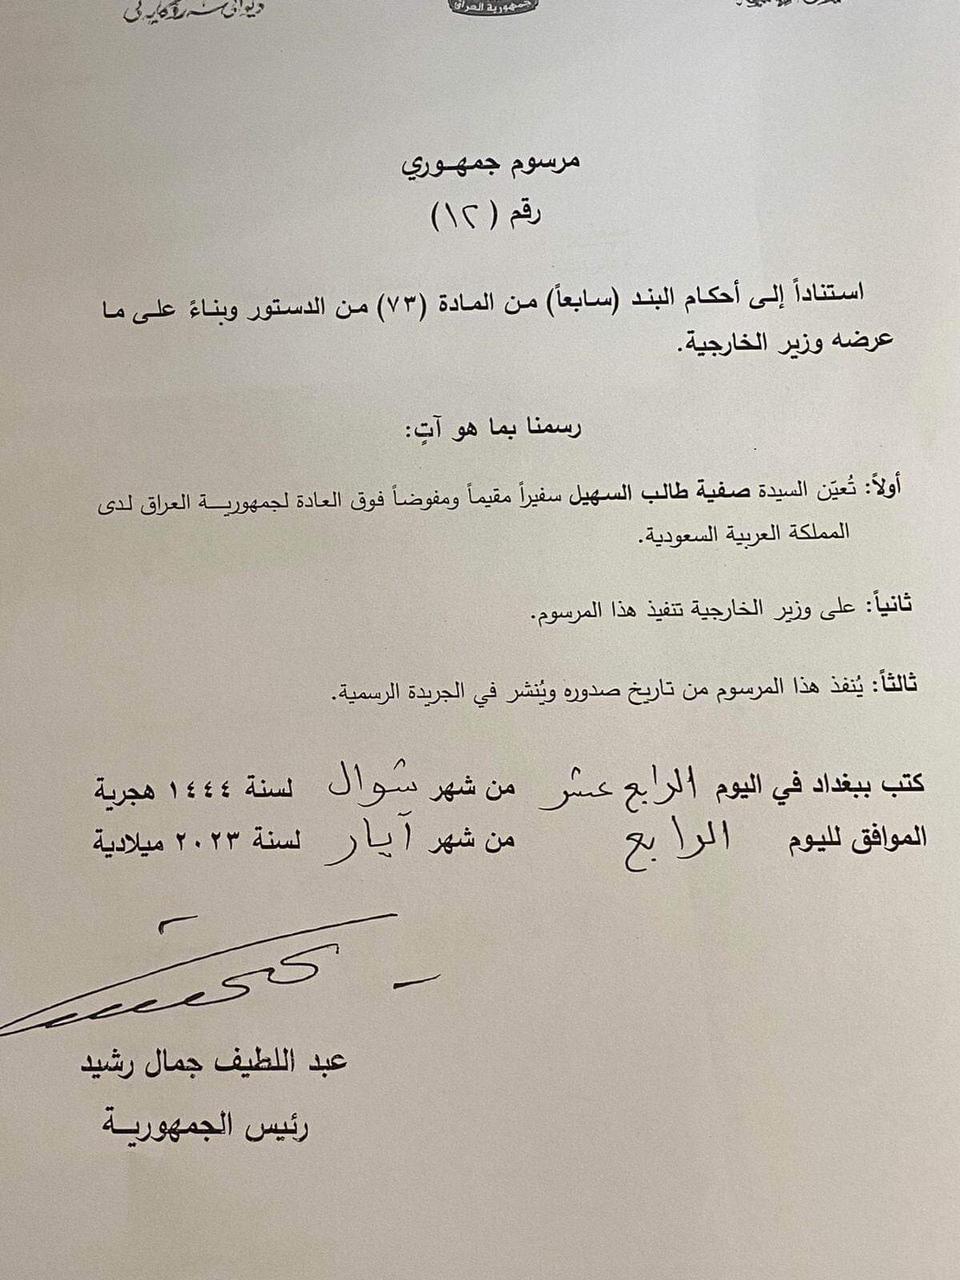 جمهورية العراق
مرسوم جمهـوري
رقم (١٢)
استناداً إلى أحكام البند (سابعاً) من المادة (٧٣) من الدستور وبناءً على ما
عرضه وزير الخارجية.
رسمنا بما هو آتٍ:
أولاً: تُعيّن السيدة صفية طالب السهيل سفيراً مقيماً ومفوضاً فوق العادة لجمهوريـــة العراق لدى
المملكة العربية السعودية.
ثانياً: على وزير الخارجية تنفيذ هذا المرسوم.
ثالثاً: يُنفذ هذا المرسوم من تاريخ صدوره ويُنشر في الجريدة الرسمية.
كتب ببغداد في اليوم الرابع عشر من شهر شوال لسنة ١٤٤٤ هجرية
الموافق لليوم الرابع من شهر آيار لسنة ٢٠٢٣ ميلادية
عبد اللطيف جمال رشيد
رئيس الجمهوريــة